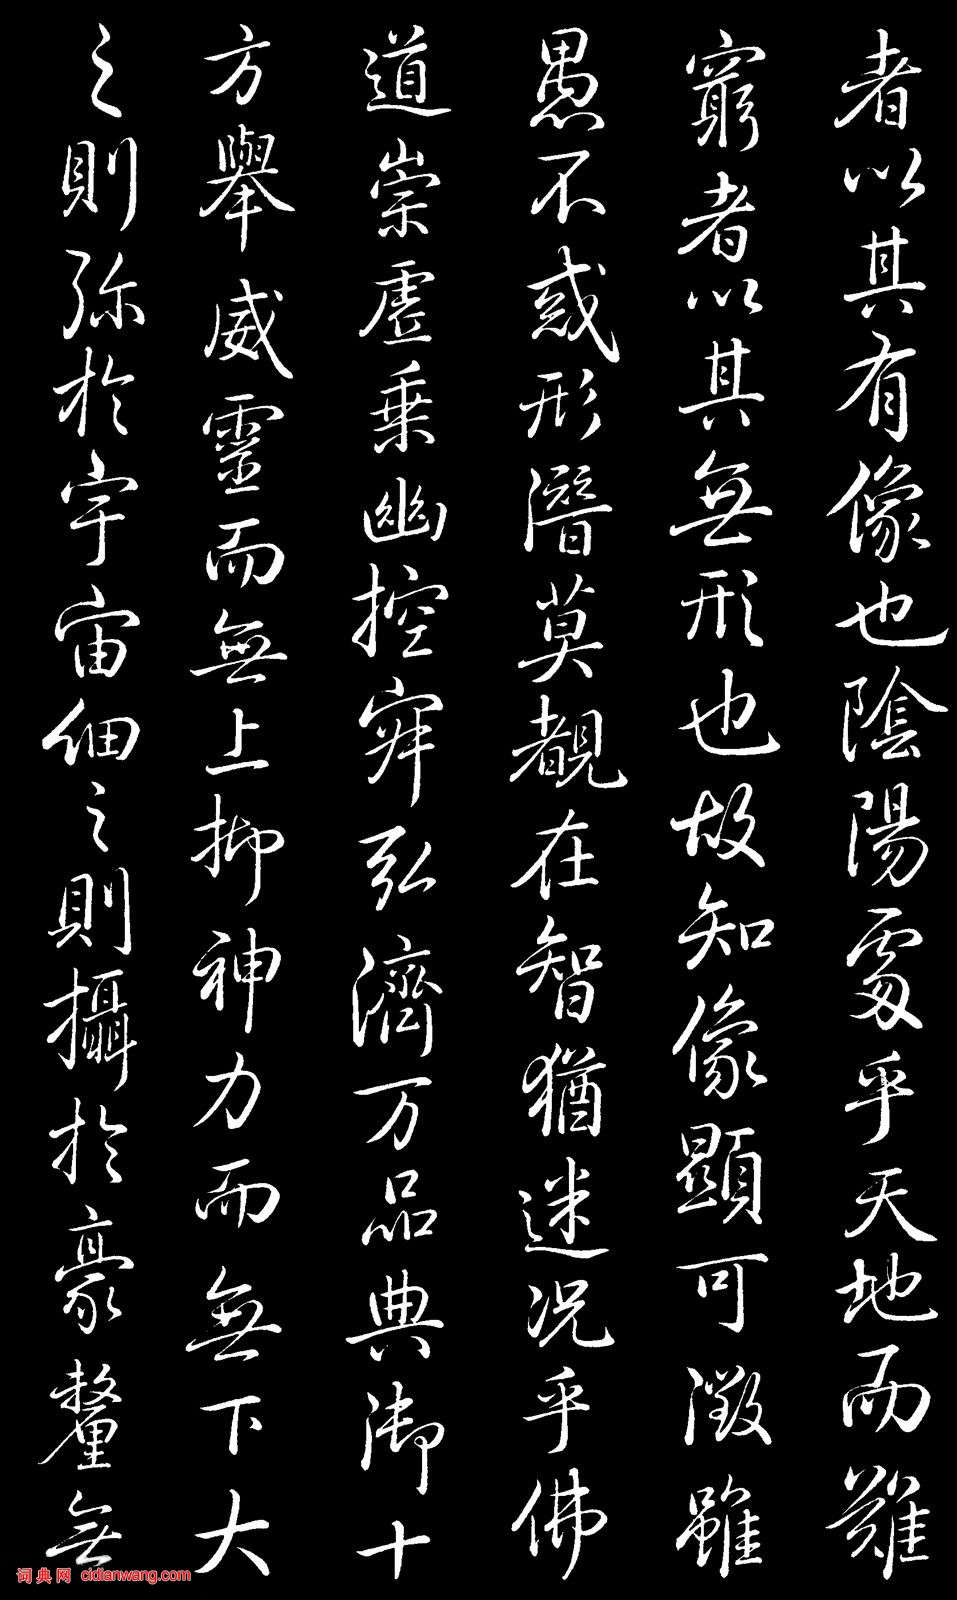 者以其有像也陰陽處乎天地而難
窮者以其無形也故知像顯可徵雖
愚不惑形潛莫覩在智猶迷況乎佛
道崇虛乗幽控寂弘濟万品典御十
方舉威靈而無上抑神力而無下大
之則弥於宇宙細之則攝於豪釐無
词典网 cidianwang.com